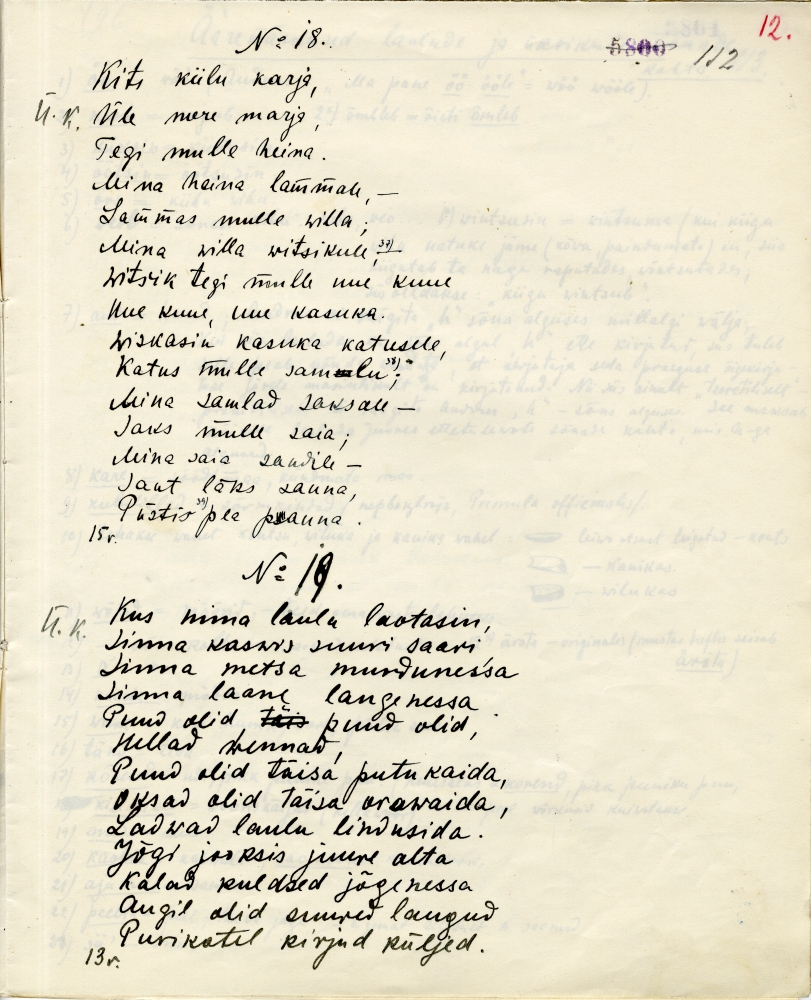 12.
5800 112
№ 18.
Kits külu karja,
Ü. K. Üle mere marja,
Tegi mulle heina.
Mina heina lam̄male, —
Lam̄mas mulle willa;
Mina willa witsikule, 37)—
Witsik tegi mulle uue kuue
Uue kuue, uue kasuka.
Wiskasin kasuka katusele,
Katus mulle samlu 38);
Mina samlad saksale —
Saks mulle saia;
Mina saia sandile —
Sant läks sauna,
Püstis 39) pea panna.
15r.
№ 19.
Ü. K. Kus mina laulu laotasin,
Sinna kaswis suuri saari
Sinna metsa murdunessa
Sinna laane langenessa
Puud olid täis puud olid,
Hellad wennad,
Puud olid täisa putukaida,
Oksad olid täisa orawaida,
Ladwad laulu lindusida.
Jõgi jooksis juure alta
Kalad kuldsed jõgenessa
Augil olid suured laugud
Purikatel kirjud küljed.
13r.